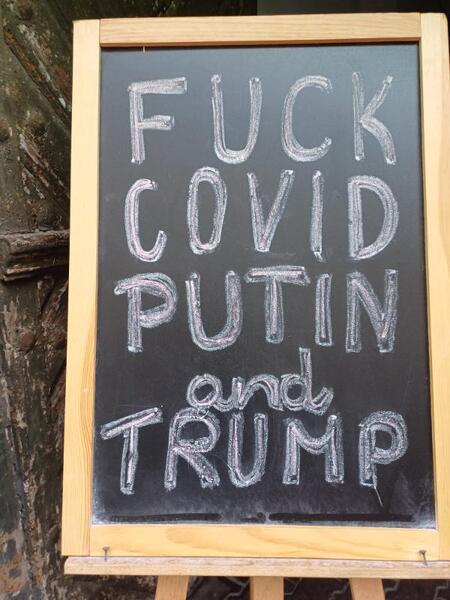 FUCK
COVID
PUTIN
and
TRUMP